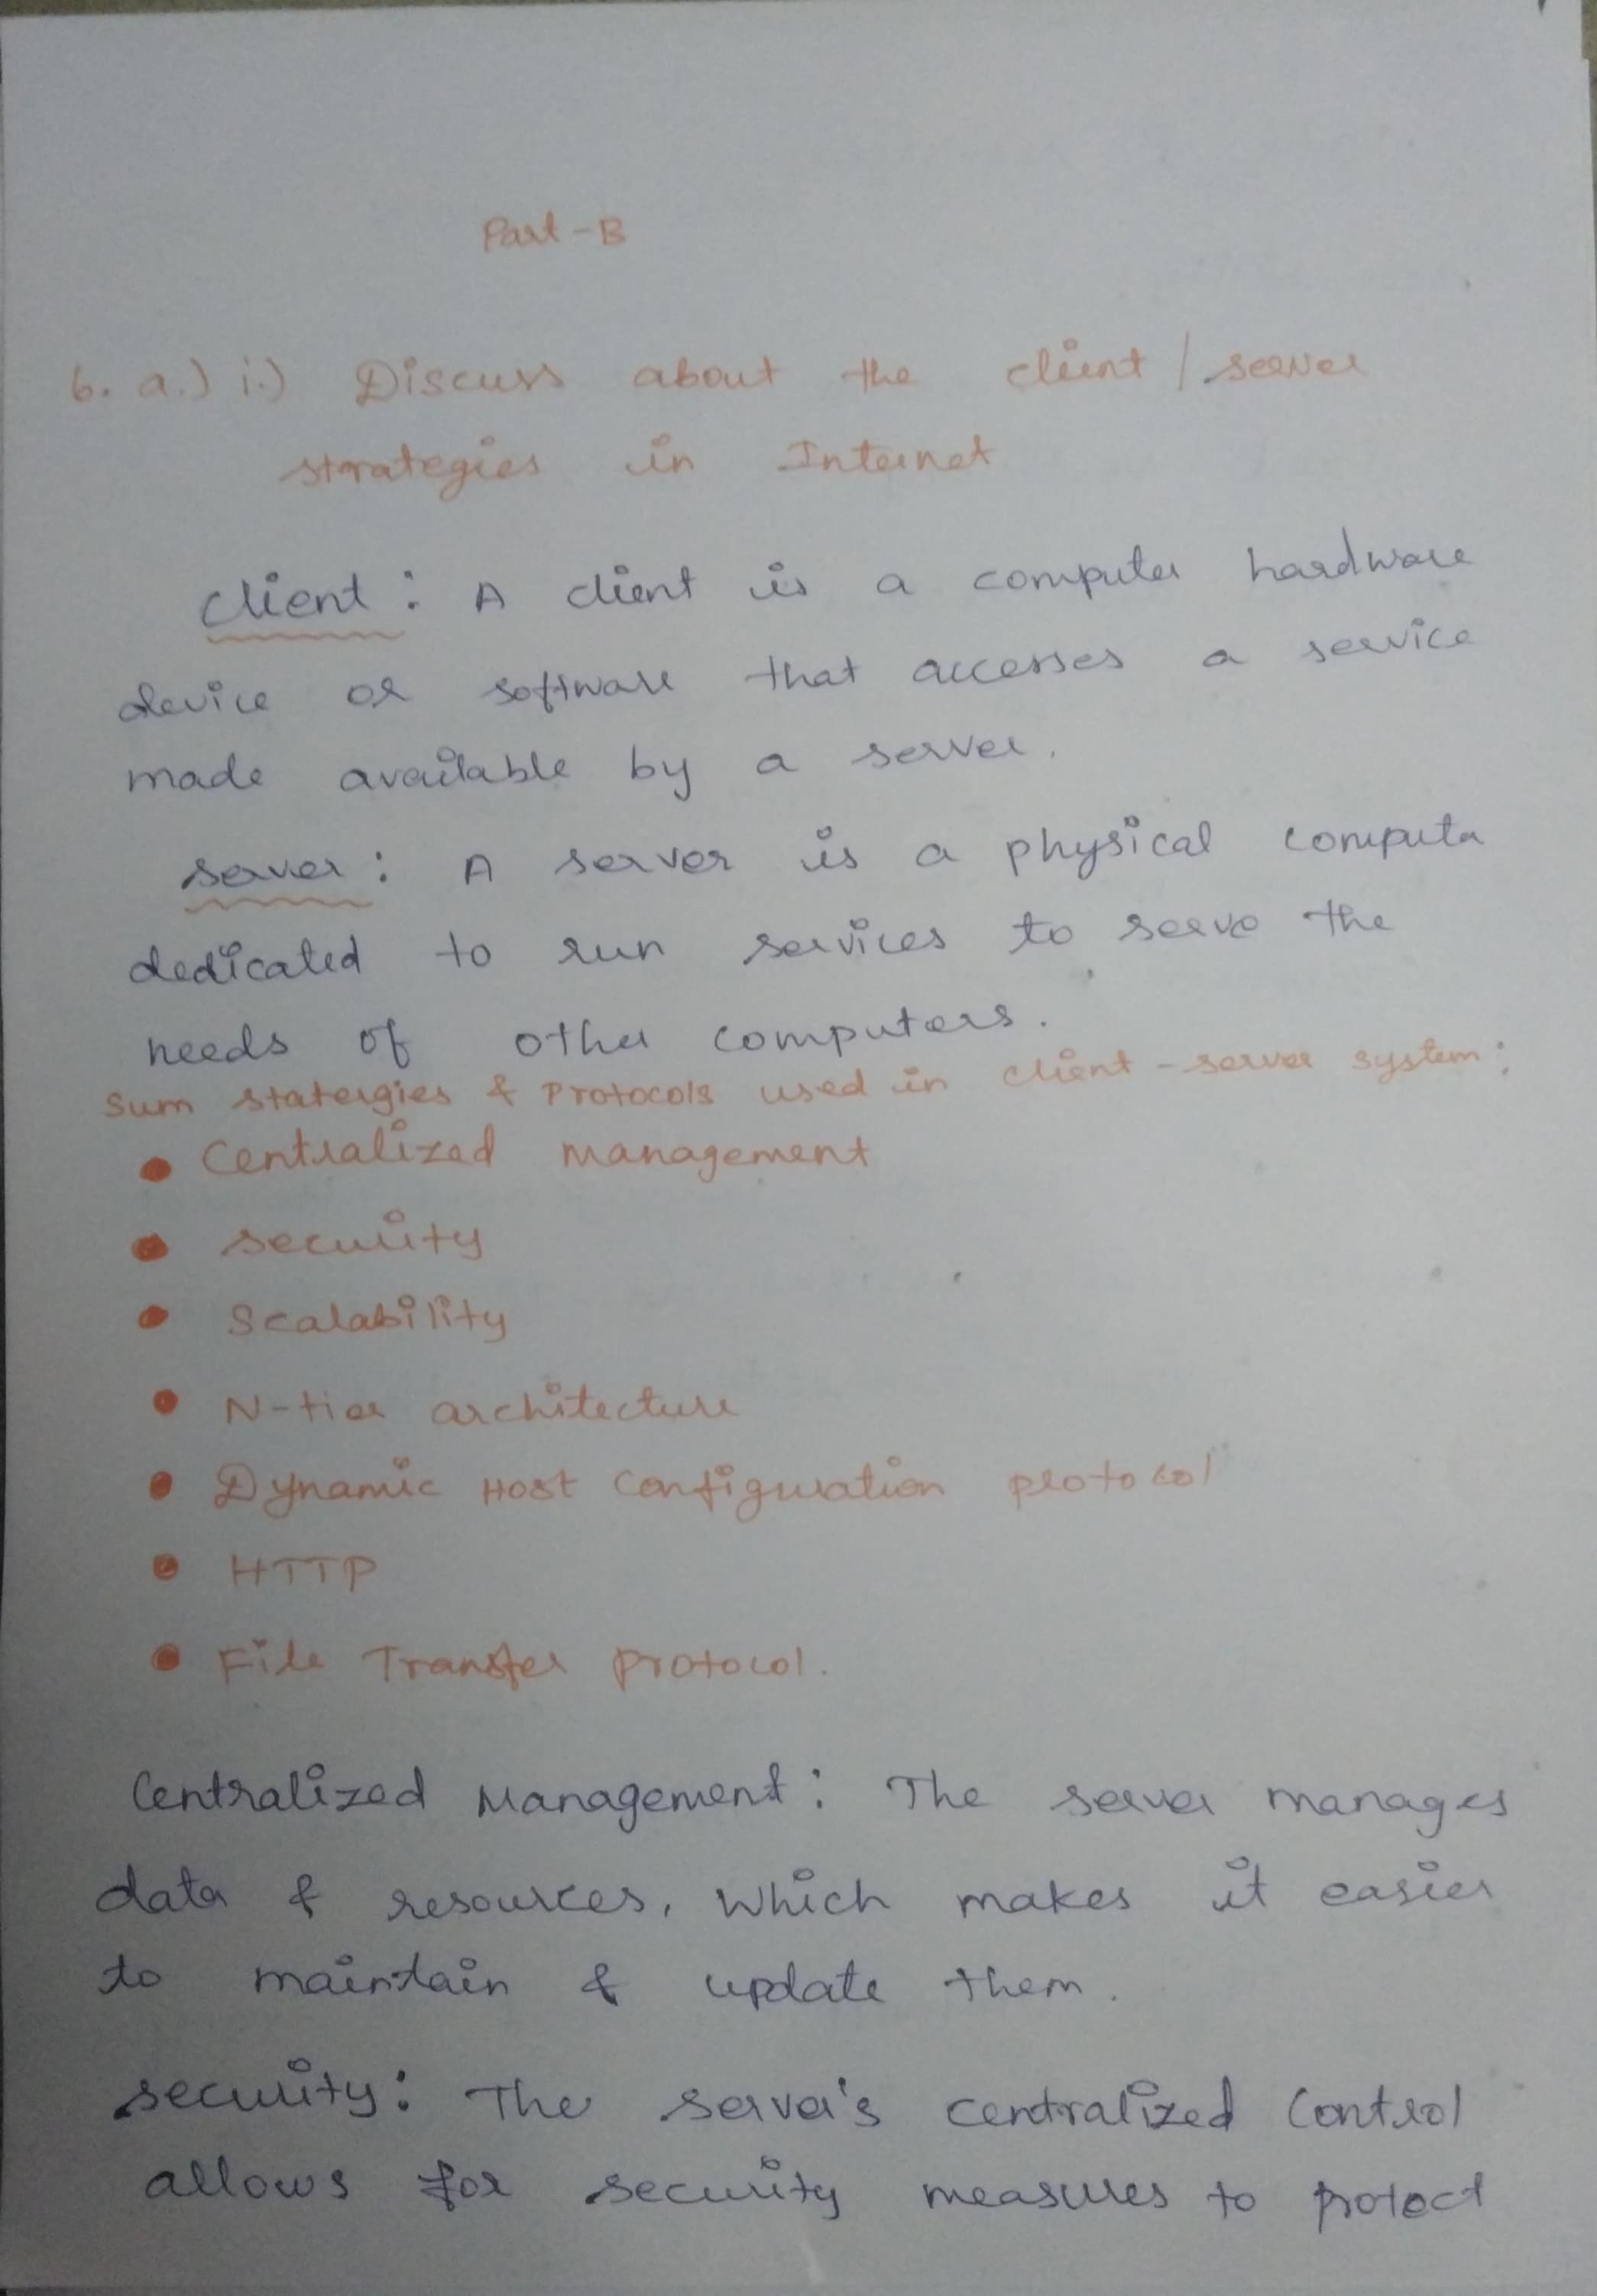 Part-B
6. a.) i.) Discuss about the client / server
strategies in Internet
Client : A client is a computer hardware
device or software that accesses a service
made available by a server.
Server : A server is a physical computer
dedicated to run services to serve the
needs of other computers.
Sum statergies & Protocols used in client - server system :
• Centralized management
• Security
• Scalability
• N-tier architecture
• Dynamic Host Configuration protocol
• HTTP
• File Transfer Protocol.
Centralized Management : The server manages
data & resources, which makes it easier
to maintain & update them.
Security : The server's centralized control
allows for security measures to protect